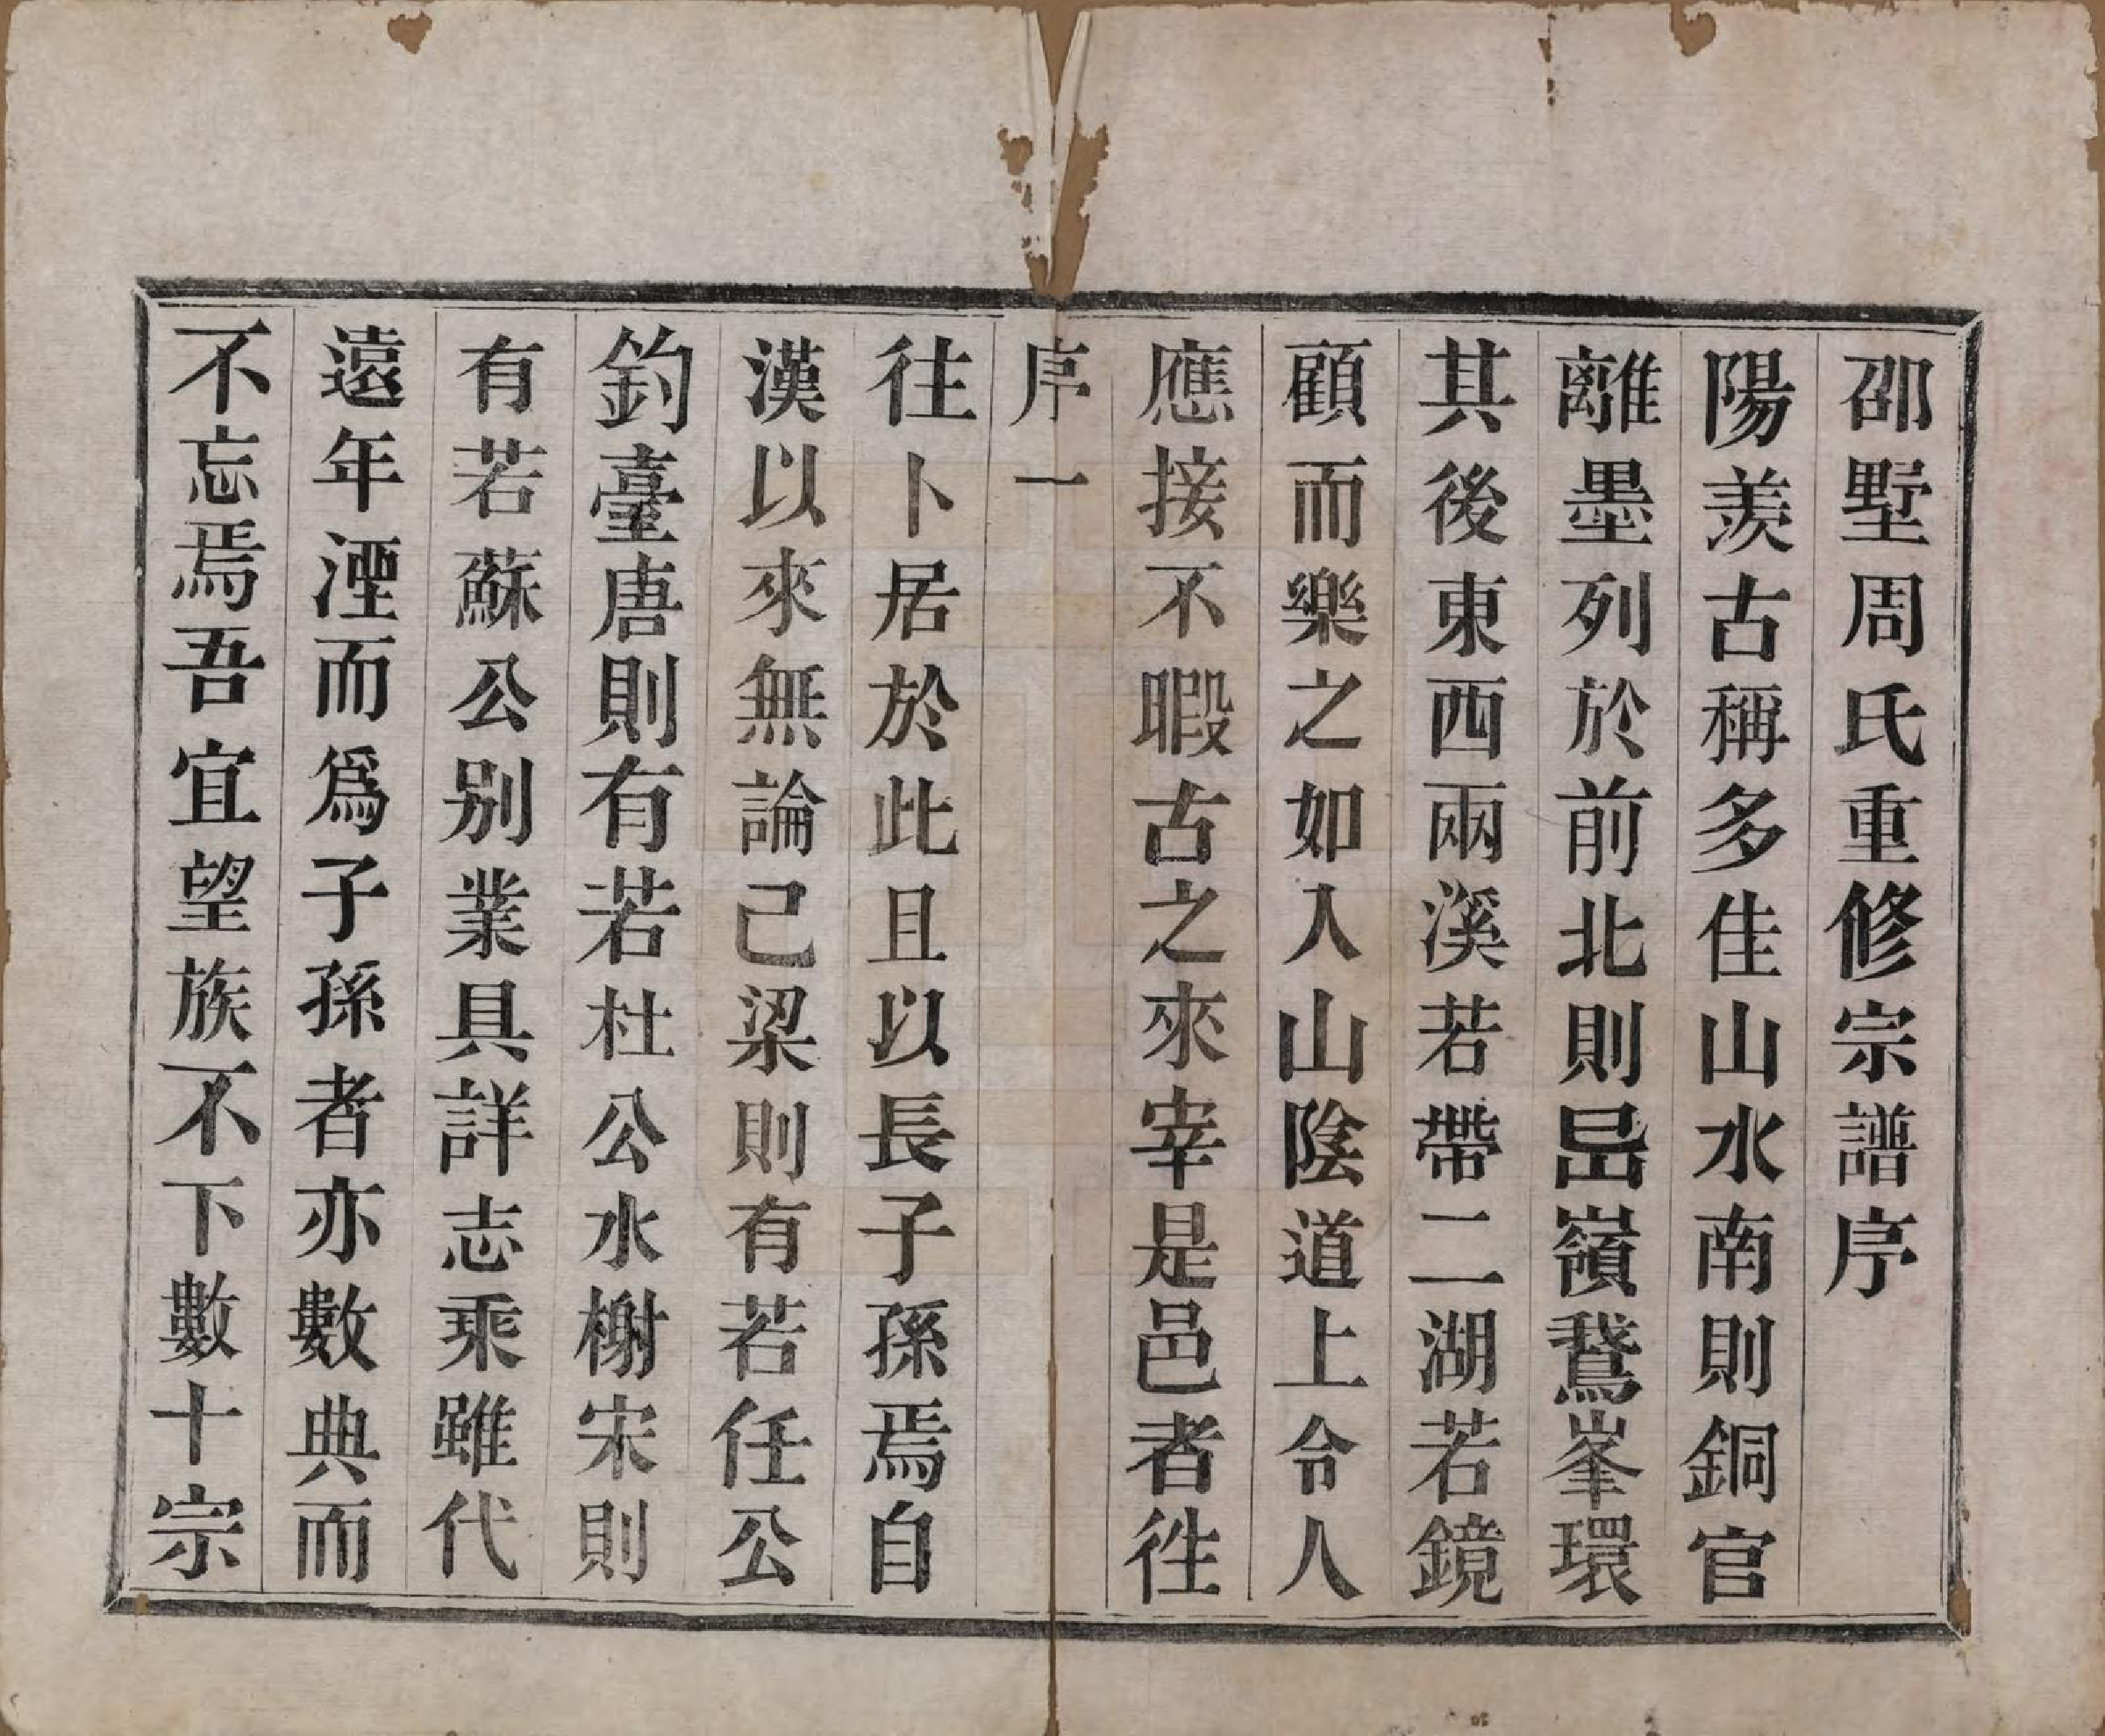 邵墅周氏重修宗譜序
陽羨古稱多佳山水南則銅官
離墨列於前北則嵒嶺鵞峯環
其後東西兩溪若帶二湖若鏡
顧而樂之如入山陰道上令人
應接不暇古之來宰是邑者徃
序一
往卜居於此且以長子孫焉自
漢以來無論己梁則有若任公
釣臺唐則有若杜公水榭宋則
有若蘇公別業具詳志乘雖代
遠年湮而爲子孫者亦數典而
不忘焉吾宜望族不下數十宗